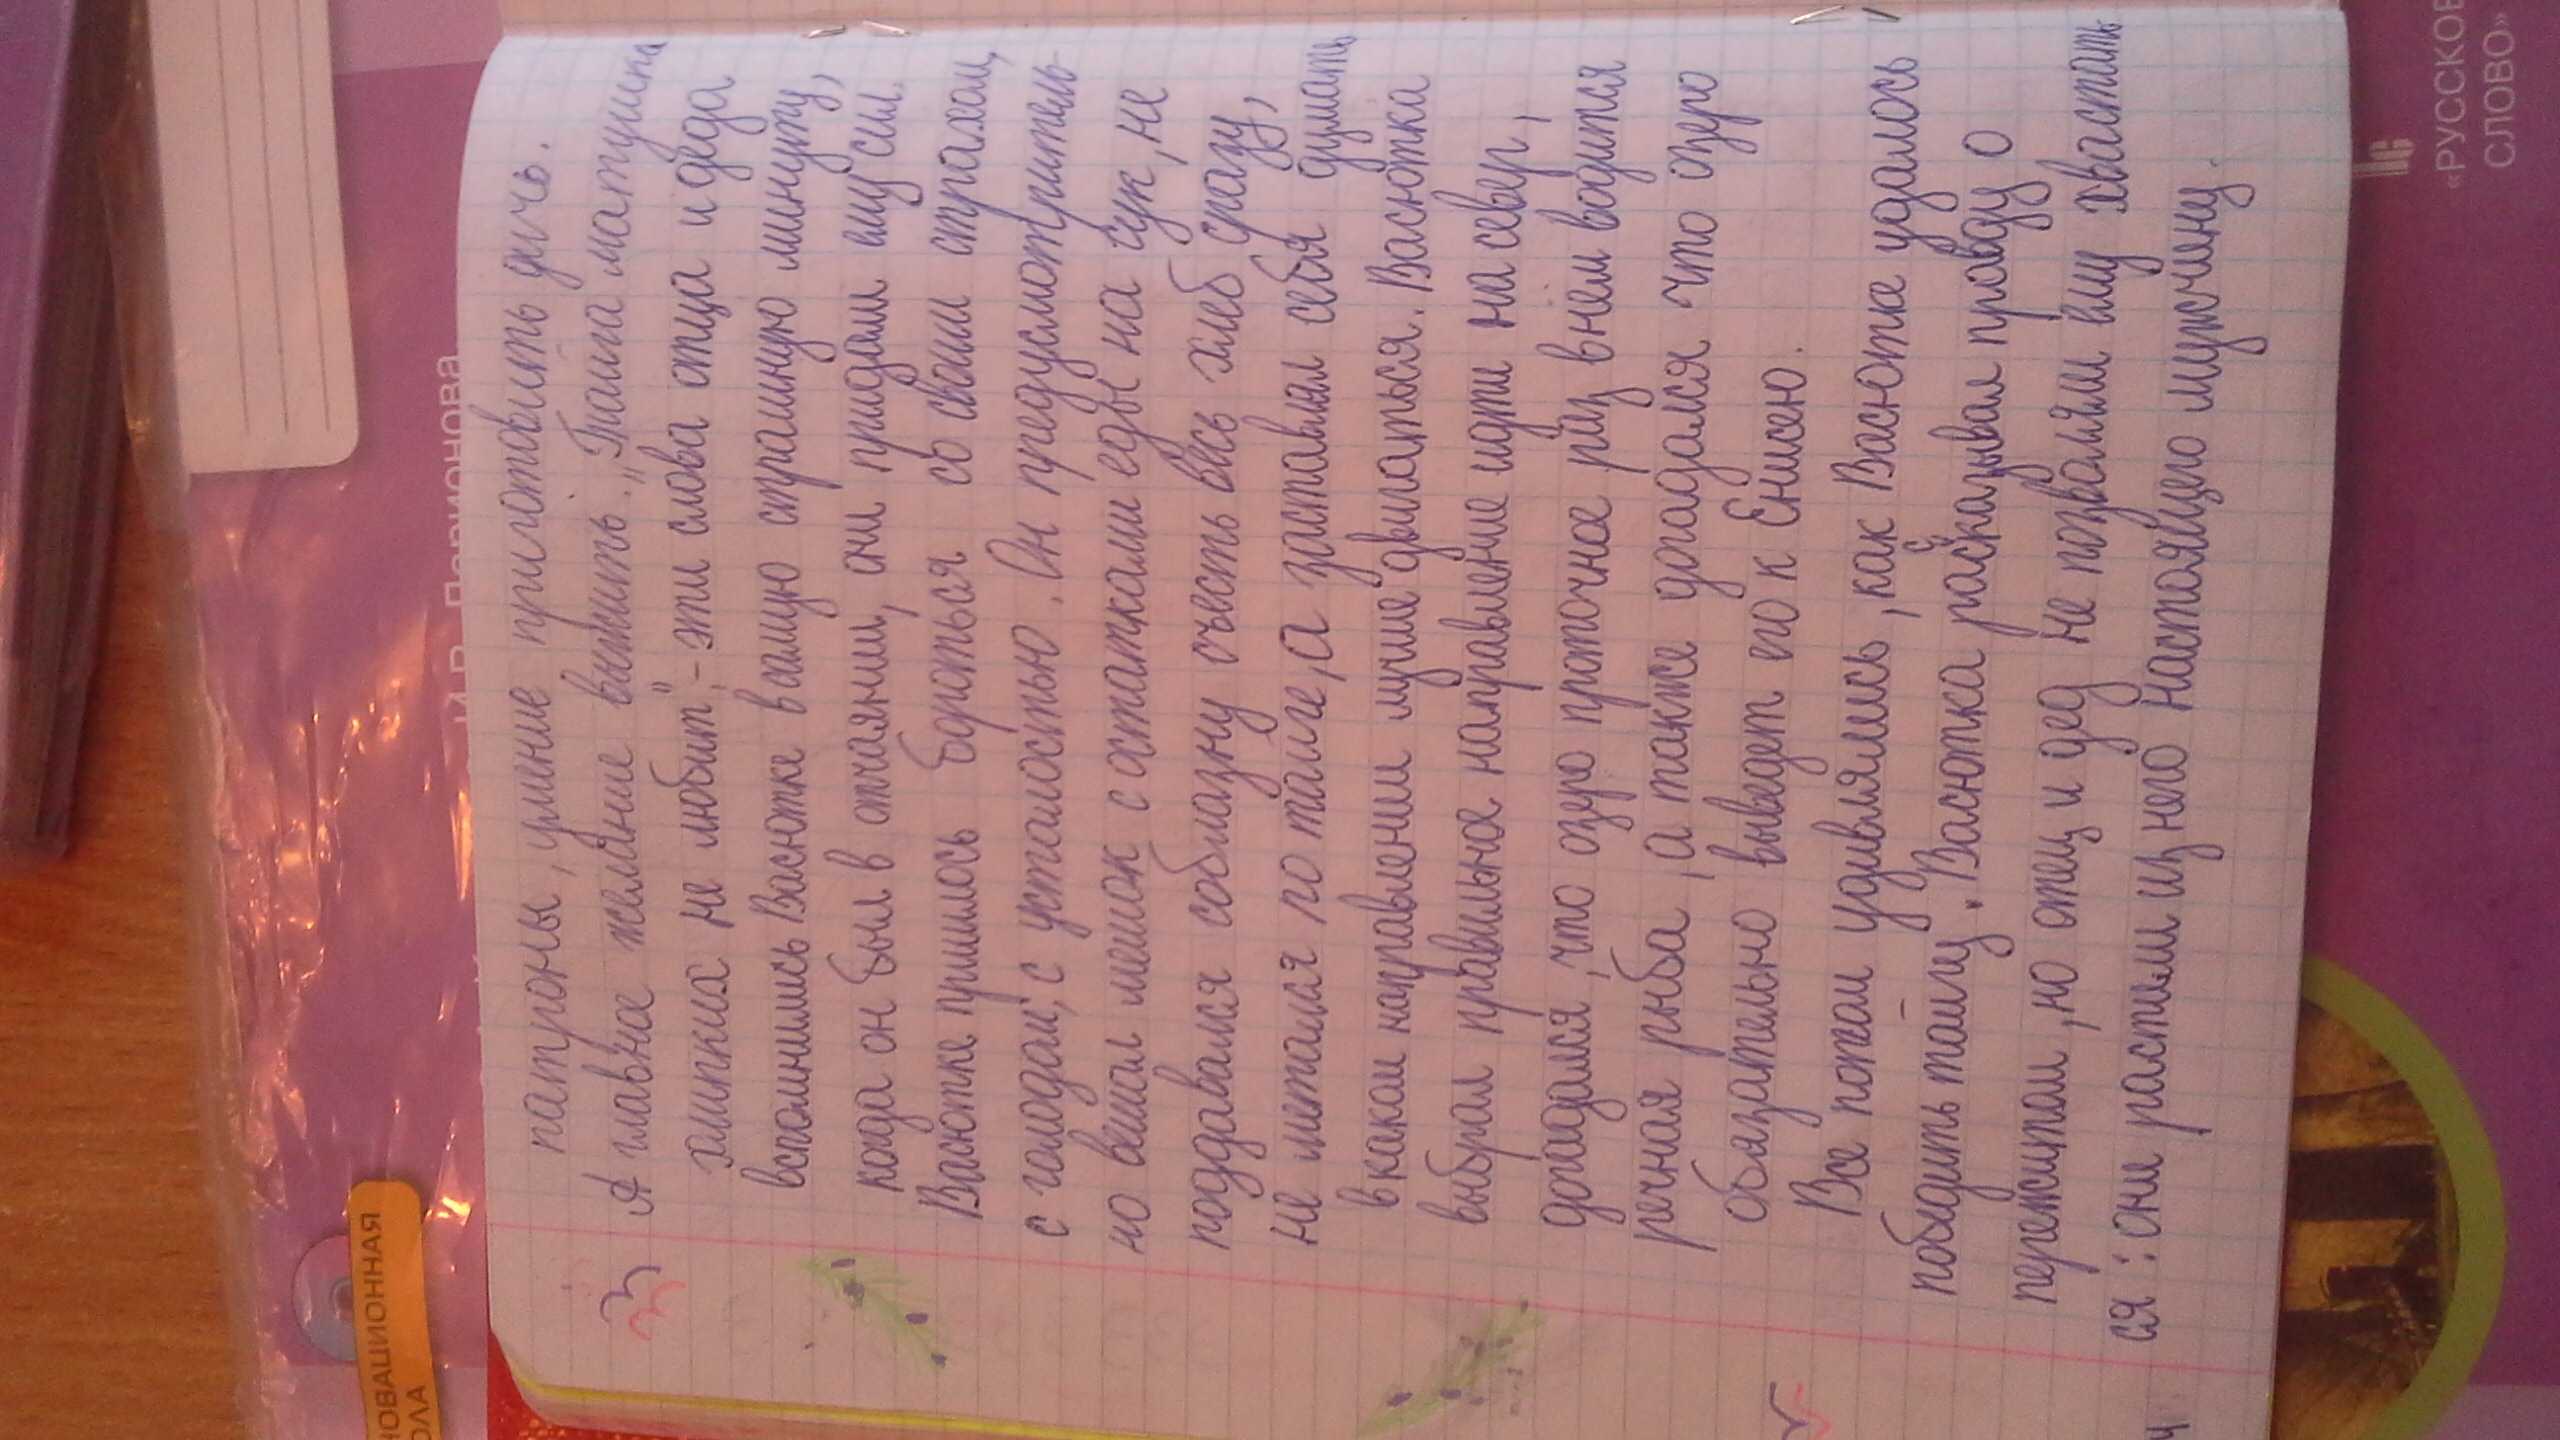 патроны, умение приготовить дичь.
А главное желание выжить. „Тайга матушка
хлипких не любит", - эти слова отца и деда
вспомнились Васютке в самую страшную минуту,
когда он был в отчаянии, они придали ему сил.
Васютке пришлось бороться со своим страхом,
с голодом, с усталостью. Он предусмотритель-
но вешал мешок с остатками еды на сук, не
поддавался соблазну съесть весь хлеб сразу,
не метался по тайге, а заставлял себя думать
в каком направлении лучше двигаться. Васютка
выбрал правильное направление идти на север,
догадался, что озеро проточное раз в нем водится
речная рыба, а также догадался что озеро
обязательно выведет его к Енисею.
Все потом удивлялись, как Васютке удалось
победить тайгу. Васютка расказывал правду о
пережитом, но отец и дед не позволяли ему хвастать-
ся: они растили из него настоящего мужчину.
«РУССКОЕ
СЛОВО»
НОВАЦИОННАЯ
ОЛА